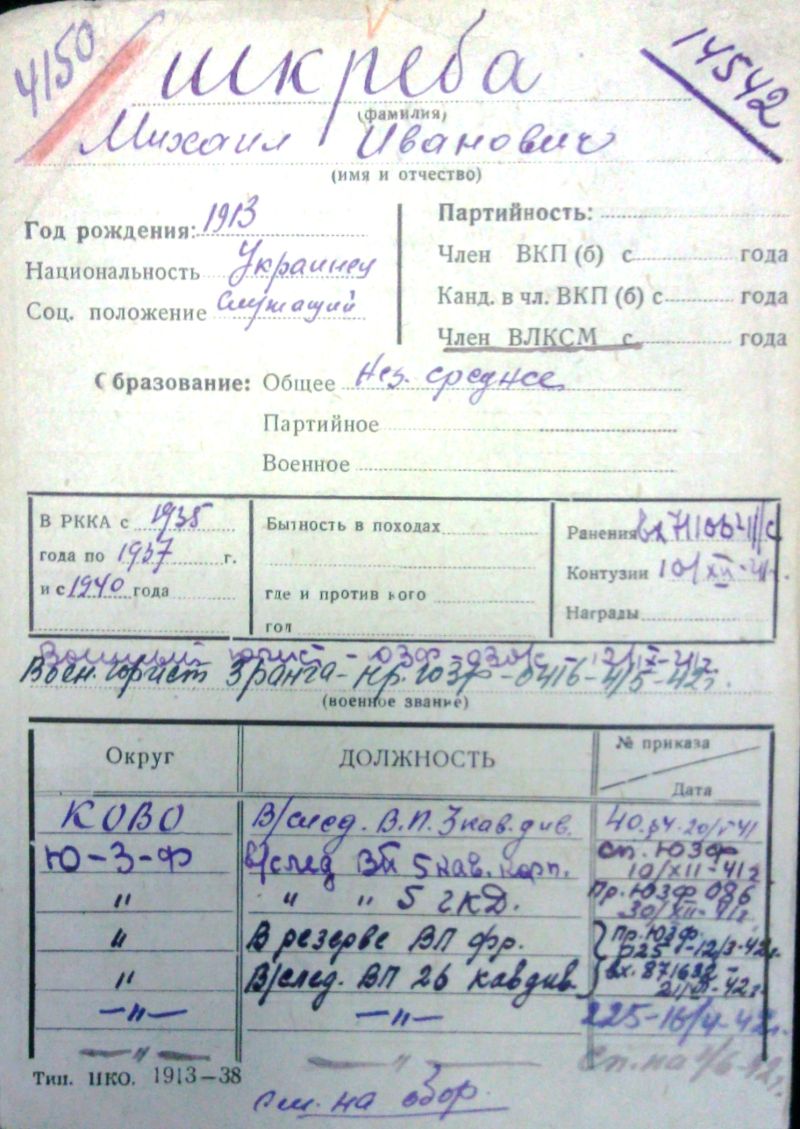 4150
14542
Шкреба
(фамилия)
Михаил Иванович
(имя и отчество)
Год рождения: 1913
Национальность Украинец
Соц. положение Служащий
Партийность:
Член ВКП (б) с года
Канд. в чл. ВКП (б) с года
Член ВЛКСМ с года
Образование: Общее Нез. среднее
Партийное
Военное
В РККА с 1935
года по 1937 г.
и с 1940 года
Бытность в походах
где и против кого
гол
Ранения
Контузии 10/XII-41г.
Награды
Военный юрист - ЮЗФ - 030/с - 12/IX-41г.
Воен. юрист 3 ранга - пр. ЮЗФ - 0416 - 4/5-42г.
(военное звание)
Округ ДОЛЖНОСТЬ № приказа
Дата
КОВО В/след. В.П. 3 кав. див.
Ю-З-Ф В/след ВП 5 кав. корп. Сп. ЮЗФ
10/XII-41г
" " " 5 гКД. Пр. ЮЗФ 086
30/XII-41г
" В резерве ВП фр. Пр. ЮЗФ
025 - 12/3-42г.
" В/след. ВП 26 кавдив. вх. 871632 -
-"- -"- 225-16/4-42г.
- " - - " - Сп. на 1/6-42г.
Тип. НКО. 1913—38
см. на обор.